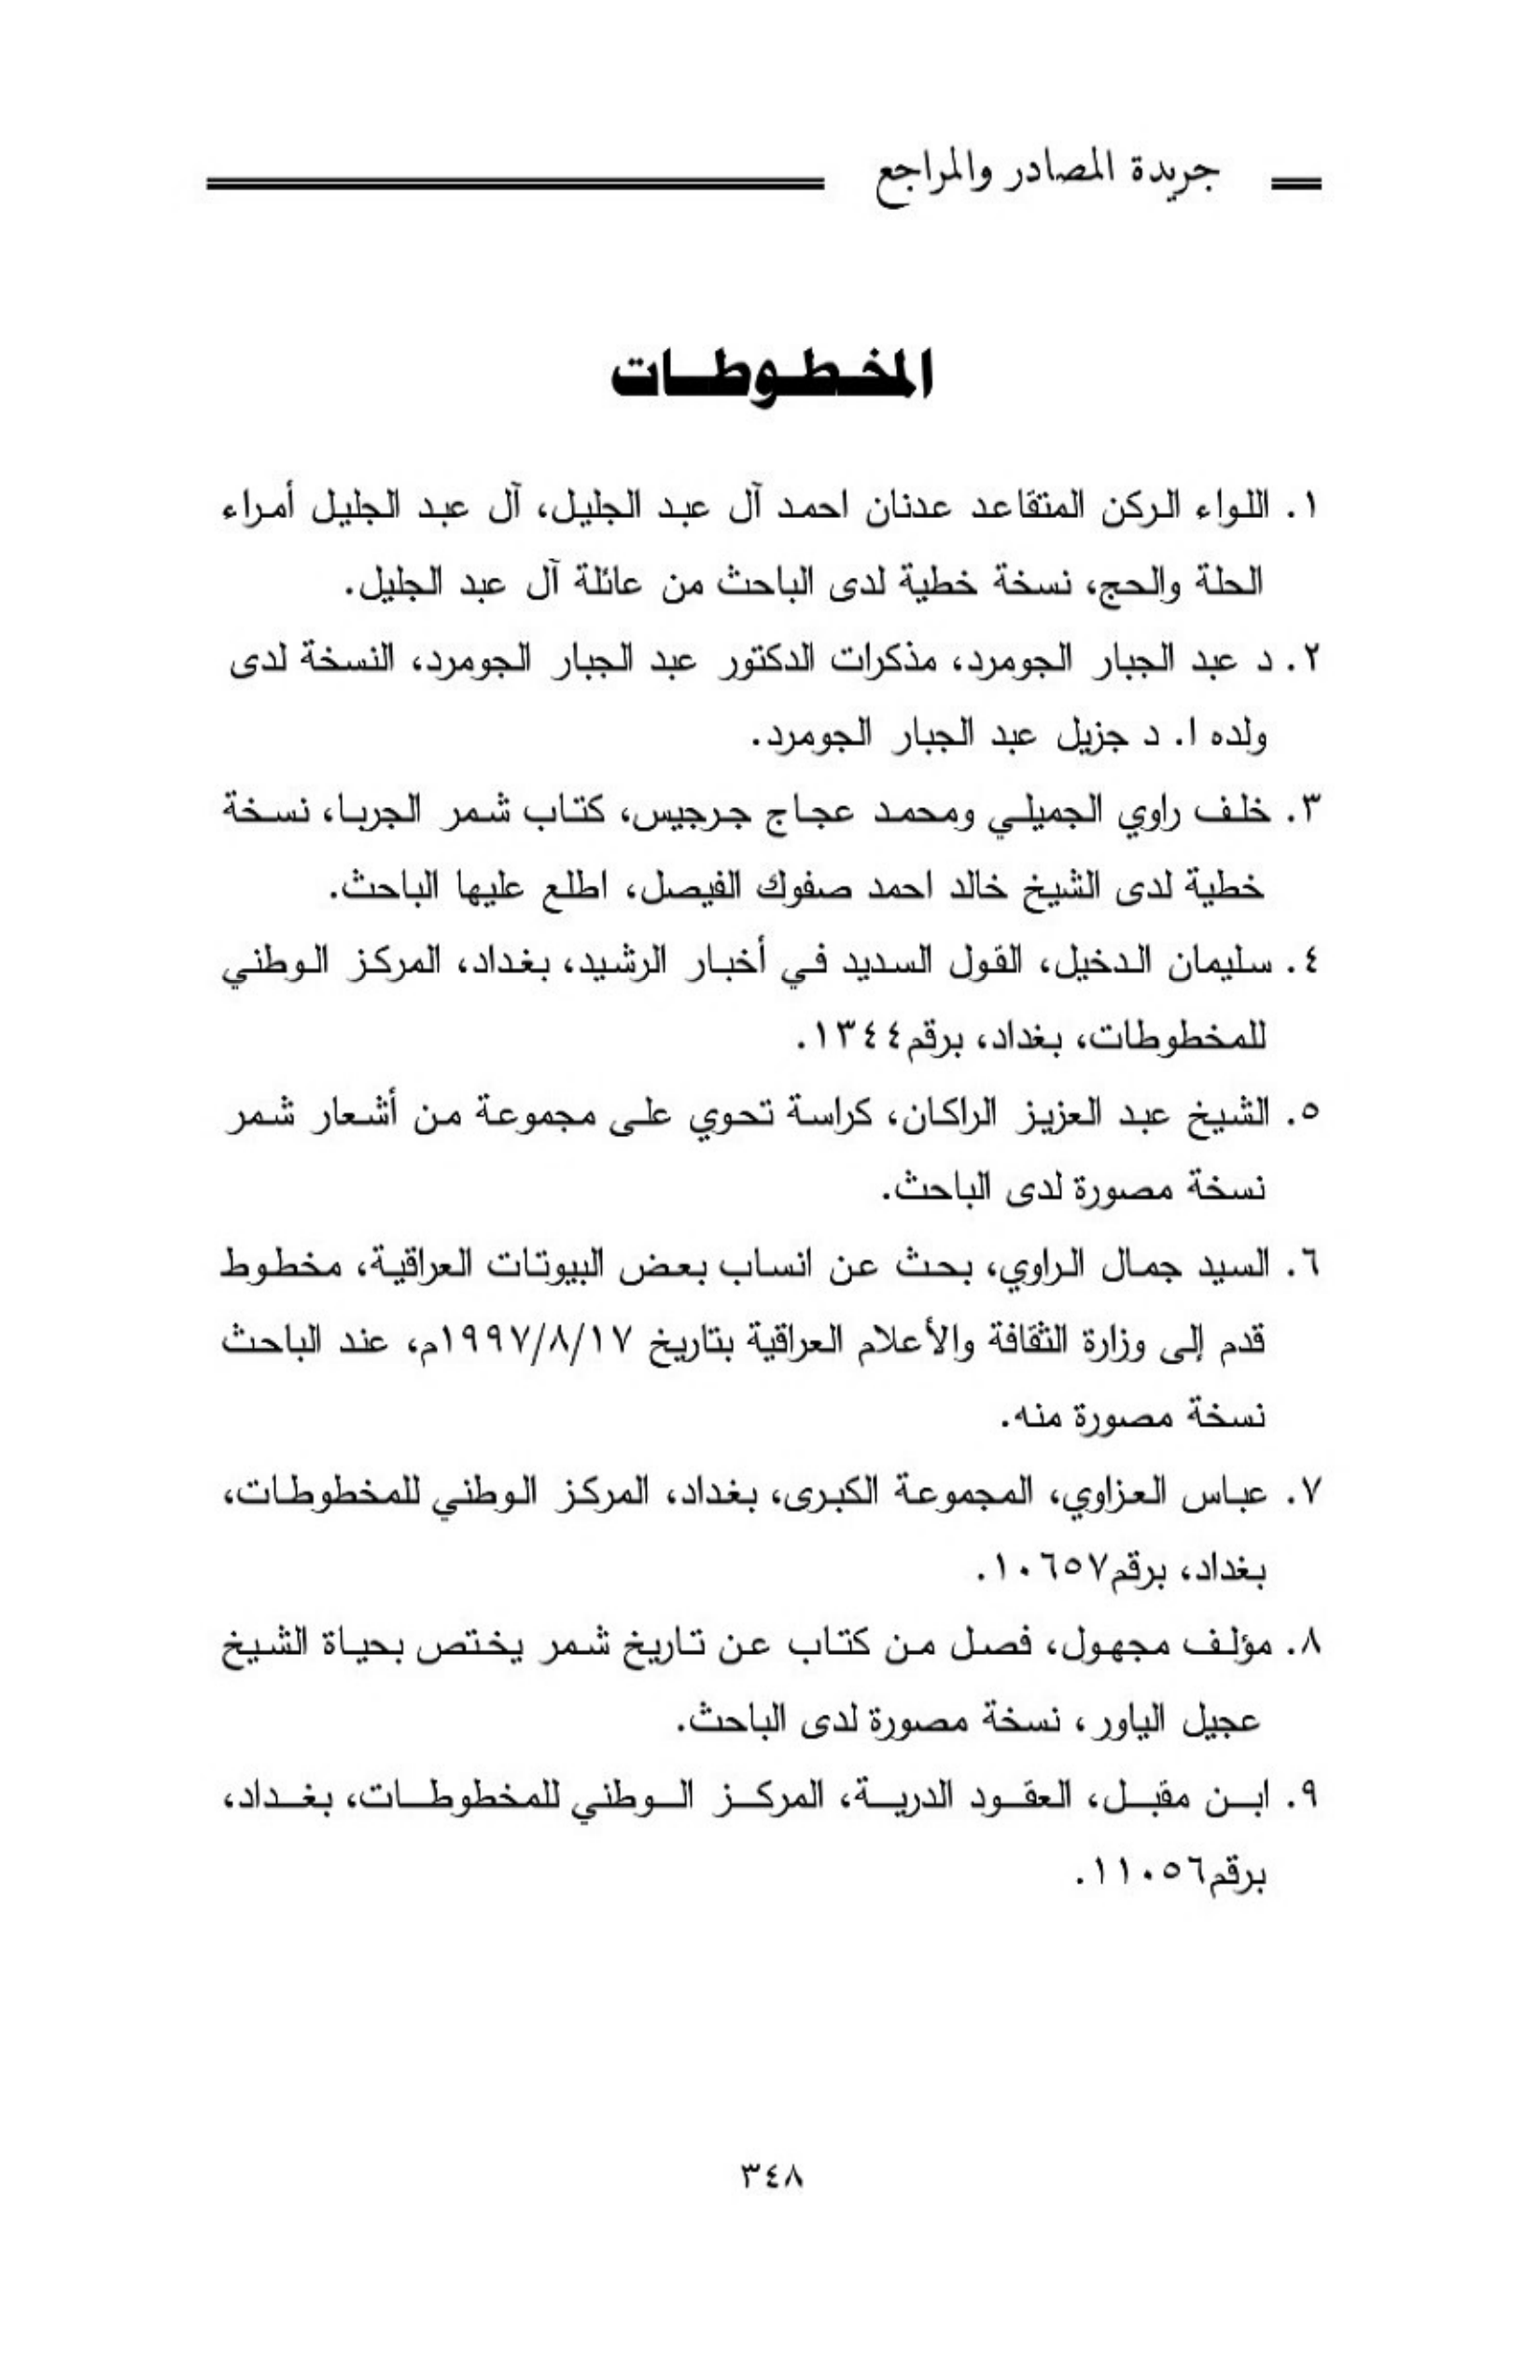 جريدة المصادر والمراجع
المخطوطات
١. اللواء الركن المتقاعد عدنان احمد آل عبد الجليل، آل عبد الجليل أمراء
الحلة والحج، نسخة خطية لدى الباحث من عائلة آل عبد الجليل.
٢. د عبد الجبار الجومرد، مذكرات الدكتور عبد الجبار الجومرد، النسخة لدى
ولده ا. د جزيل عبد الجبار الجومرد.
٣. خلف راوي الجميلي ومحمد عجاج جرجيس، كتاب شمر الجربا، نسخة
خطية لدى الشيخ خالد احمد صفوك الفيصل، اطلع عليها الباحث.
٤. سليمان الدخيل، القول السديد في أخبار الرشيد، بغداد، المركز الوطني
للمخطوطات، بغداد، برقم١٣٤٤.
٥. الشيخ عبد العزيز الراكان، كراسة تحوي على مجموعة من أشعار شمر
نسخة مصورة لدى الباحث.
٦. السيد جمال الراوي، بحث عن انساب بعض البيوتات العراقية، مخطوط
قدم إلى وزارة الثقافة والأعلام العراقية بتاريخ ١٩٩٧/٨/١٧م، عند الباحث
نسخة مصورة منه.
٧. عباس العزاوي، المجموعة الكبرى، بغداد، المركز الوطني للمخطوطات،
بغداد، برقم١٠٦٥٧.
٨. مؤلف مجهول، فصل من كتاب عن تاريخ شمر يختص بحياة الشيخ
عجيل الياور، نسخة مصورة لدى الباحث.
٩. ابن مقبل، العقود الدرية، المركز الوطني للمخطوطات، بغداد،
برقم١١٠٥٦.
٣٤٨